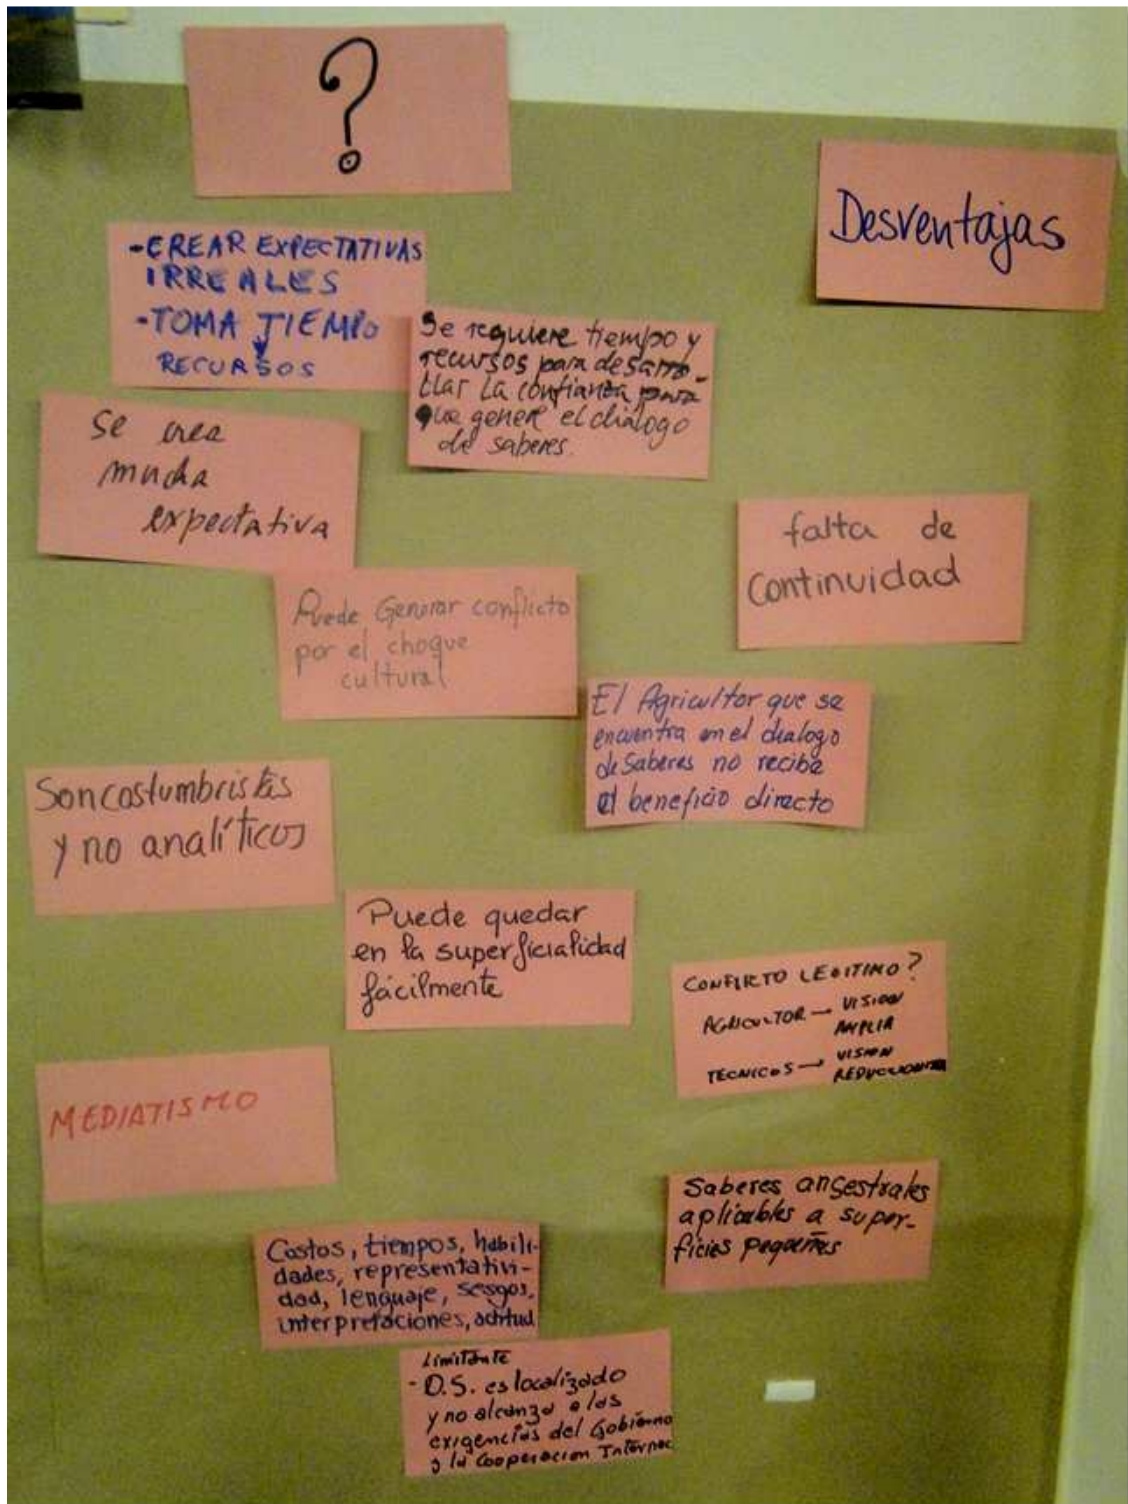 ?
Desventajas
-CREAR EXPECTATIVAS
IRREALES
-TOMA TIEMPO
RECURSOS
Se requiere tiempo y
recursos para desarro-
llar la confianza para
que genere el dialogo
de saberes.
Se crea
mucha
expectativa
falta de
Continuidad
Puede Generar conflicto
por el choque
cultural
El Agricultor que se
encuentra en el dialogo
de Saberes no recibe
el beneficio directo
Son costumbristas
y no analíticos
Puede quedar
en la superficialidad
fácilmente
CONFLICTO LEGITIMO?
AGRICULTOR → VISION
AMPLIA
TECNICOS → VISION
MEDIATISMO
Saberes ansestrales
aplicables a super-
ficies pequeñas
Costos, tiempos, habili-
dades, representativi-
dad, lenguaje, sesgos,
interpretaciones, actitud
Limitante
- D.S. es localizado
y no alcanza a las
exigencias del Gobierno
y la Cooperacion Internac